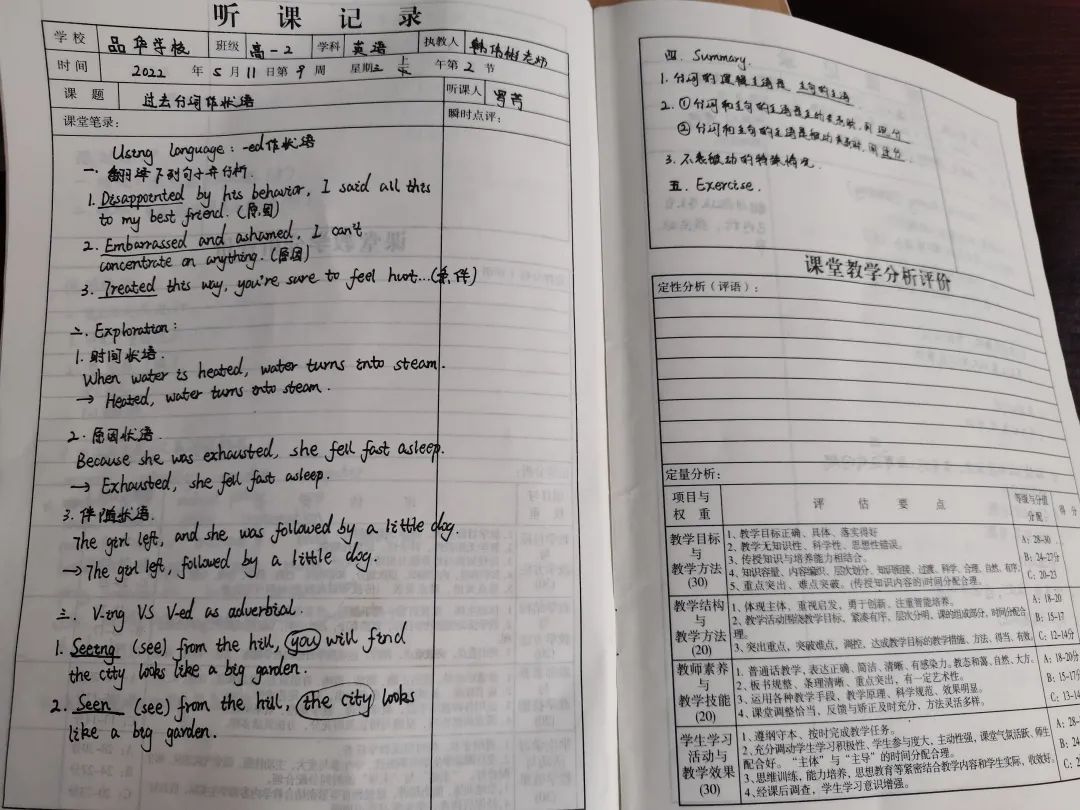 听 课 记 录
学校 品华学校 班级 高一2 学科 英语 执教人 韩倩树老师
时间 2022 年 5 月 11 日第 9 周 星期三 上 午第 2 节
下
课 题 过去分词作状语 听课人
课堂笔录： 瞬时点评：
Using language: -ed作状语
一. 翻译下列句子并分析.
1. Disappointed by his behavior, I said all this
to my best friend. (原因)
2. Embarrassed and ashamed, I can't
concentrate on anything. (原因)
3. Treated this way, you're sure to feel hurt...(条件)
二. Exploration:
1. 时间状语.
When water is heated, water turns into steam.
→ Heated, water turns into steam.
2. 原因状语.
Because she was exhausted, she fell fast asleep.
→ Exhausted, she fell fast asleep.
3. 伴随状语.
The girl left, and she was followed by a little dog.
→ The girl left, followed by a little dog.
三. V-ing VS V-ed as adverbial.
1. Seeing (see) from the hill, you will find
the city looks like a big garden.
2. Seen (see) from the hill, the city looks
like a big garden.
四. Summary.
1. 分词的逻辑主语是 主句的主语
2. ①分词和主句的主语是主动关系时, 用 现分
②分词和主句的主语是被动关系时, 用 过分
3. 不表被动的特殊情况.
五. Exercise.
课堂教学分析评价
定性分析（评语）：
定量分析：
项目与权重 评 估 要 点 等级与分值分配 得分
教学目标与教学方法(30)
1、教学目标正确、具体、落实得好
2、教学无知识性、科学性、思想性错误。
3、传授知识与培养能力相结合。
4、知识容量、内容编织、层次划分、知识衔接、过渡、科学、合理、自然、有序。
5、重点突出、难点突破。(传授知识内容的)时间分配合理。
A：28-30
B：24-27分
C：20-23
教学结构与教学方法(20)
1、体现主体、重视启发、勇于创新、注重智能培养。
2、教学活动围绕教学目标，紧凑有序，层次分明，课的组成部分，时间分配合理。
3、突出重点，突破难点，调控，达成教学目标的教学措施、方法、得当、有效
A：18-20
B：15-17
C：12-14分
教师素养与教学技能(20)
1、普通话教学，表达正确、简洁、清晰、有感染力。教态和蔼、自然、大方。
2、板书规整、条理清晰、重点突出，有一定艺术性。
3、运用各种教学手段、教学原理、科学规范、效果明显。
4、课堂调整恰当，反馈与矫正及时充分，方法灵活多样。
A：18-20分
B：15-17分
C：13-14
学生学习活动与教学效果(30)
1、遵纲守本、按时完成教学任务。
2、充分调动学生学习积极性，学生参与度大，主动性强，课堂气氛活跃，师生
配合好。“主体”与“主导”的时间分配合理。
3、思维训练，能力培养，思想教育等紧密结合教学内容和学生实际，收效好。
4、经课后调查，学生学习意识增强。
A：28-
B：24
C：2